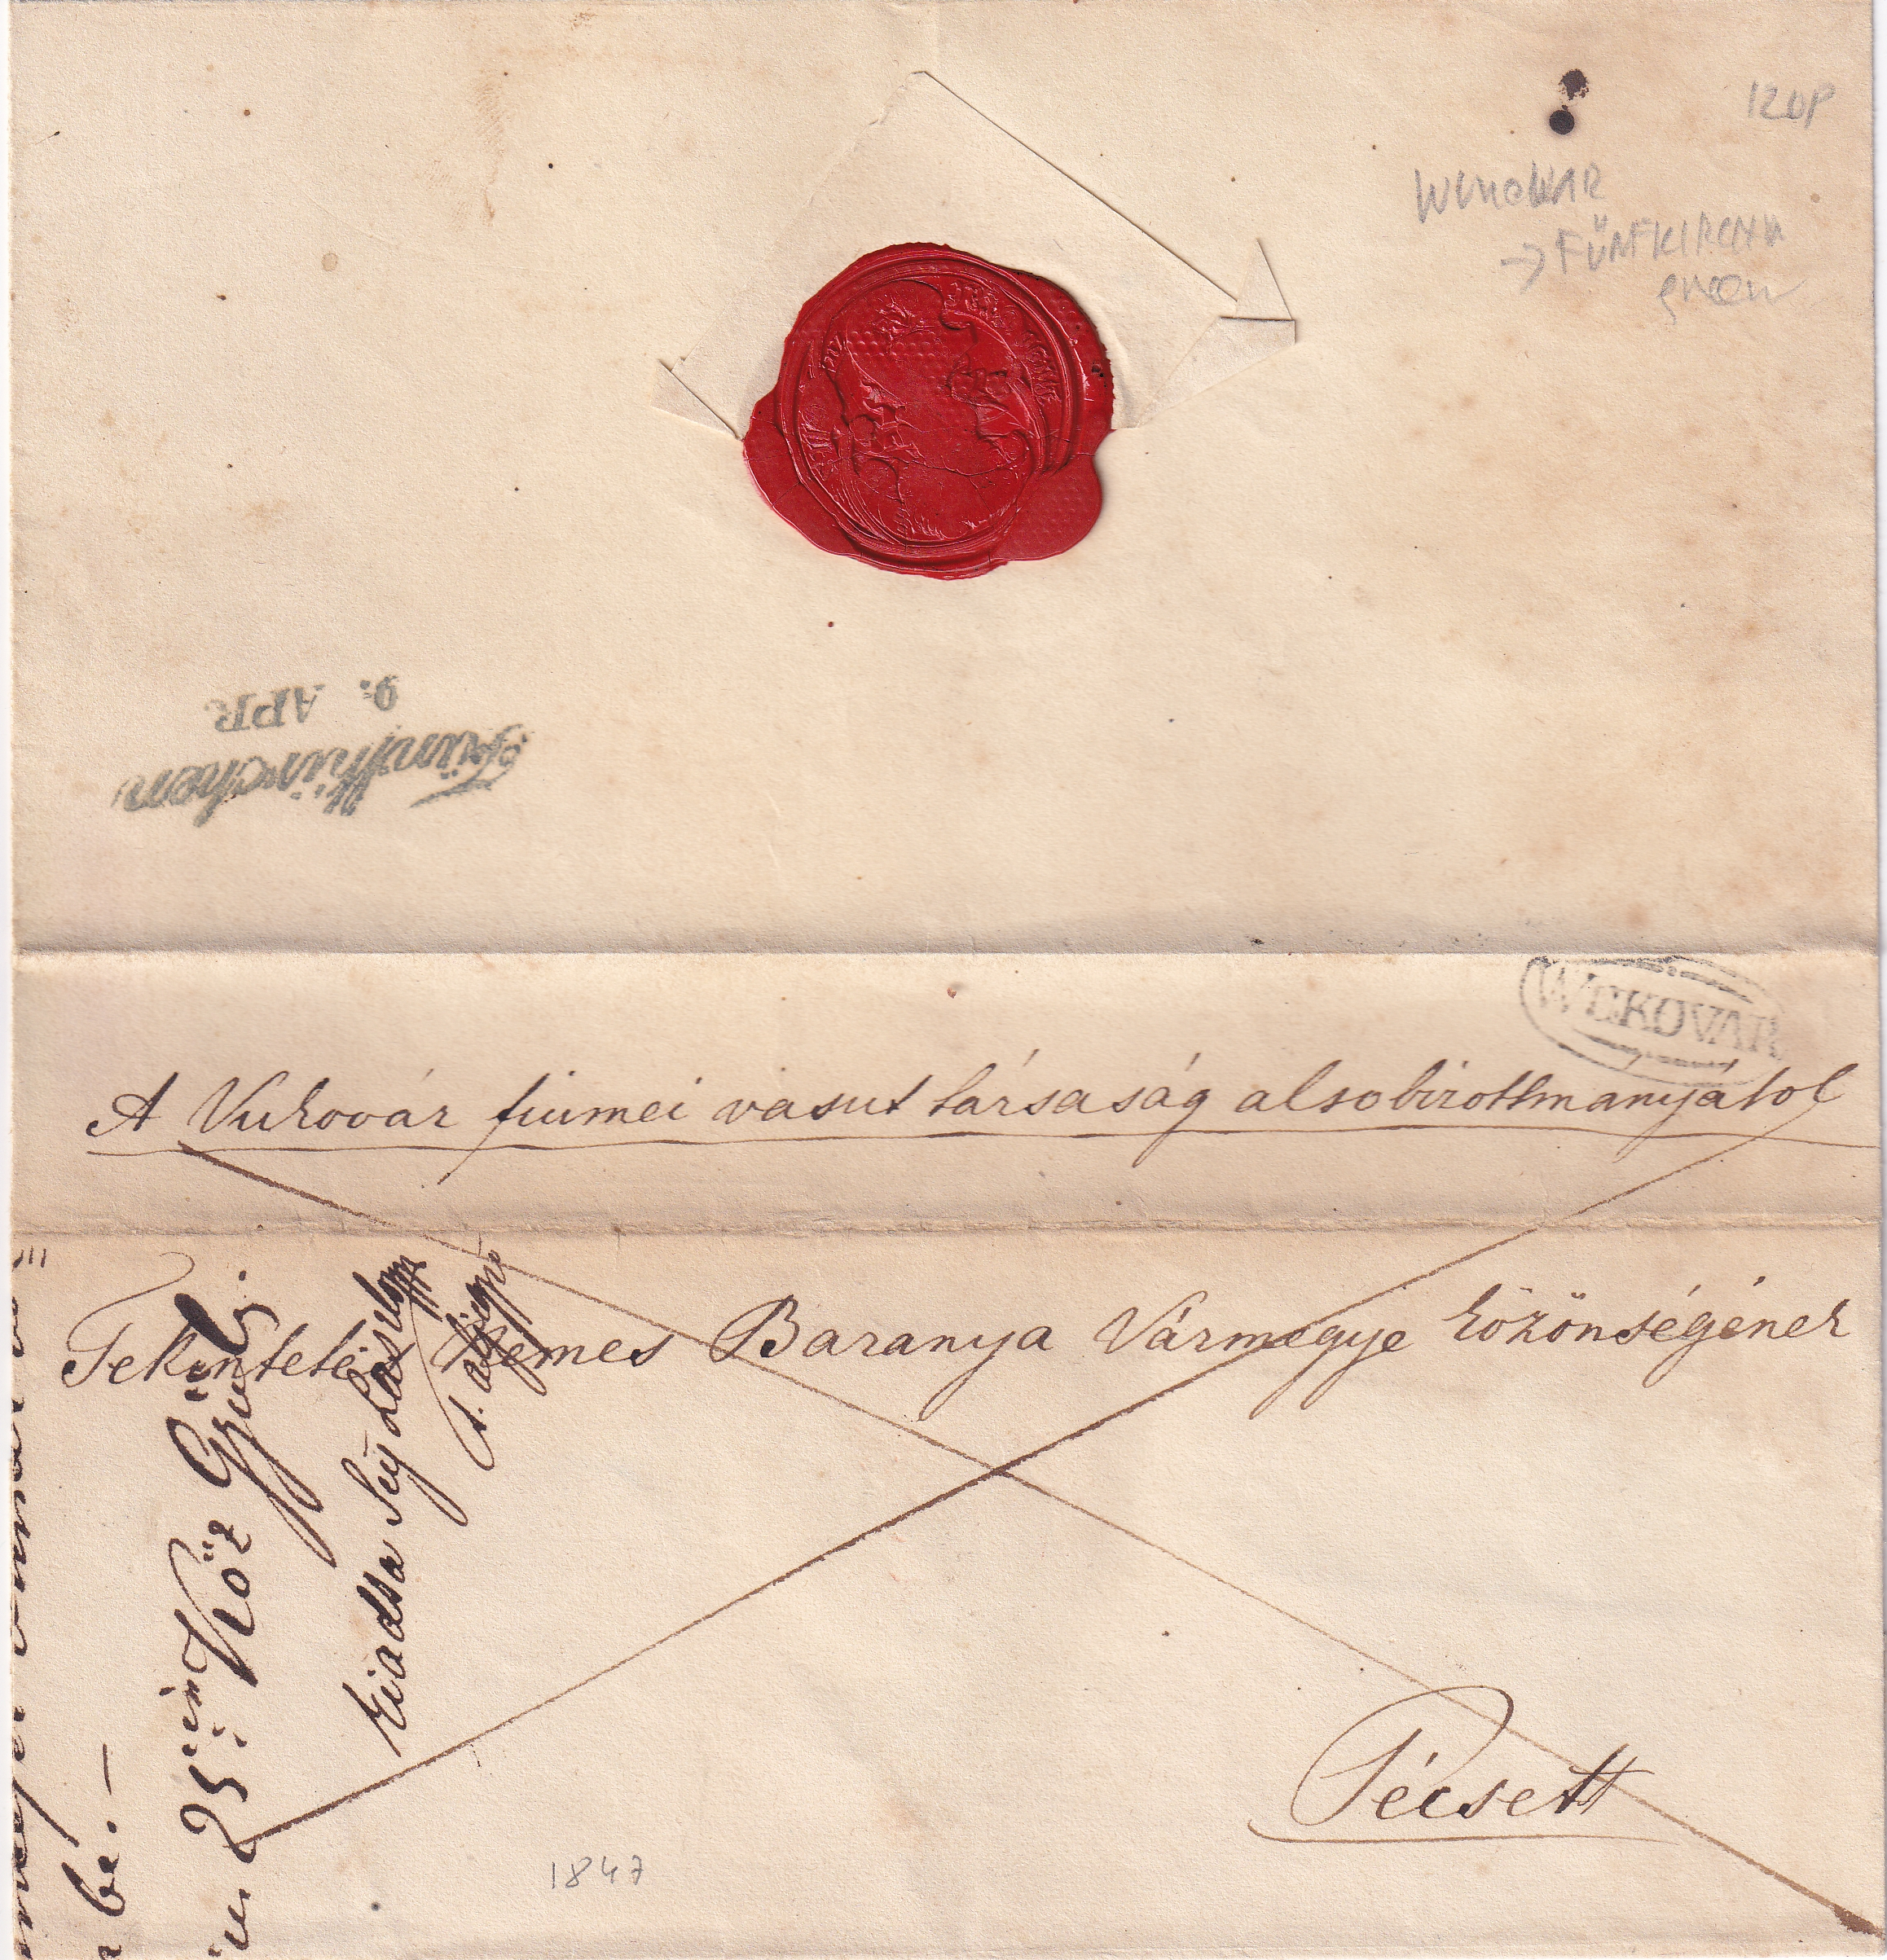 120P
WUKOWAR
→ FÜNFKIRCHN
green
9. APR.
Fünfkirchen
WUKOVAR
A Vukovár fiumei vasut társaság alsobizottmanyatol
Tekintetes Nemes Baranya Vármegye közönségének
Pécsett
1847
25 Köz Gyűl
Kiadta Seÿ László
be. –